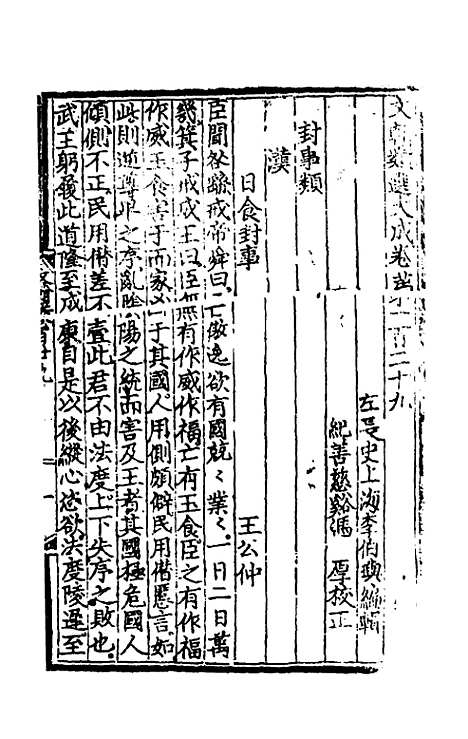 文翰類選大成卷苐一百二十九
左長史上海李伯璵編輯
紀善慈谿馮厚校正
封事類
漢
日食封事 王公仲
臣聞咎繇戒帝舜曰亡敖逸欲有國兢〻業〻一日二日萬
幾箕子戒成王曰臣無有作威作福亡有玉食臣之有作福
作威玉食害于而家凶于其國人用側頗僻民用僭慝言如
此則逆尊卑之序亂陰陽之統而害及王者其國極危國人
傾側不正民用僭差不壹此君不由法度上下失序之敗也
武王躬履此道隆至成康自是以後縱心恣欲法度陵遲至